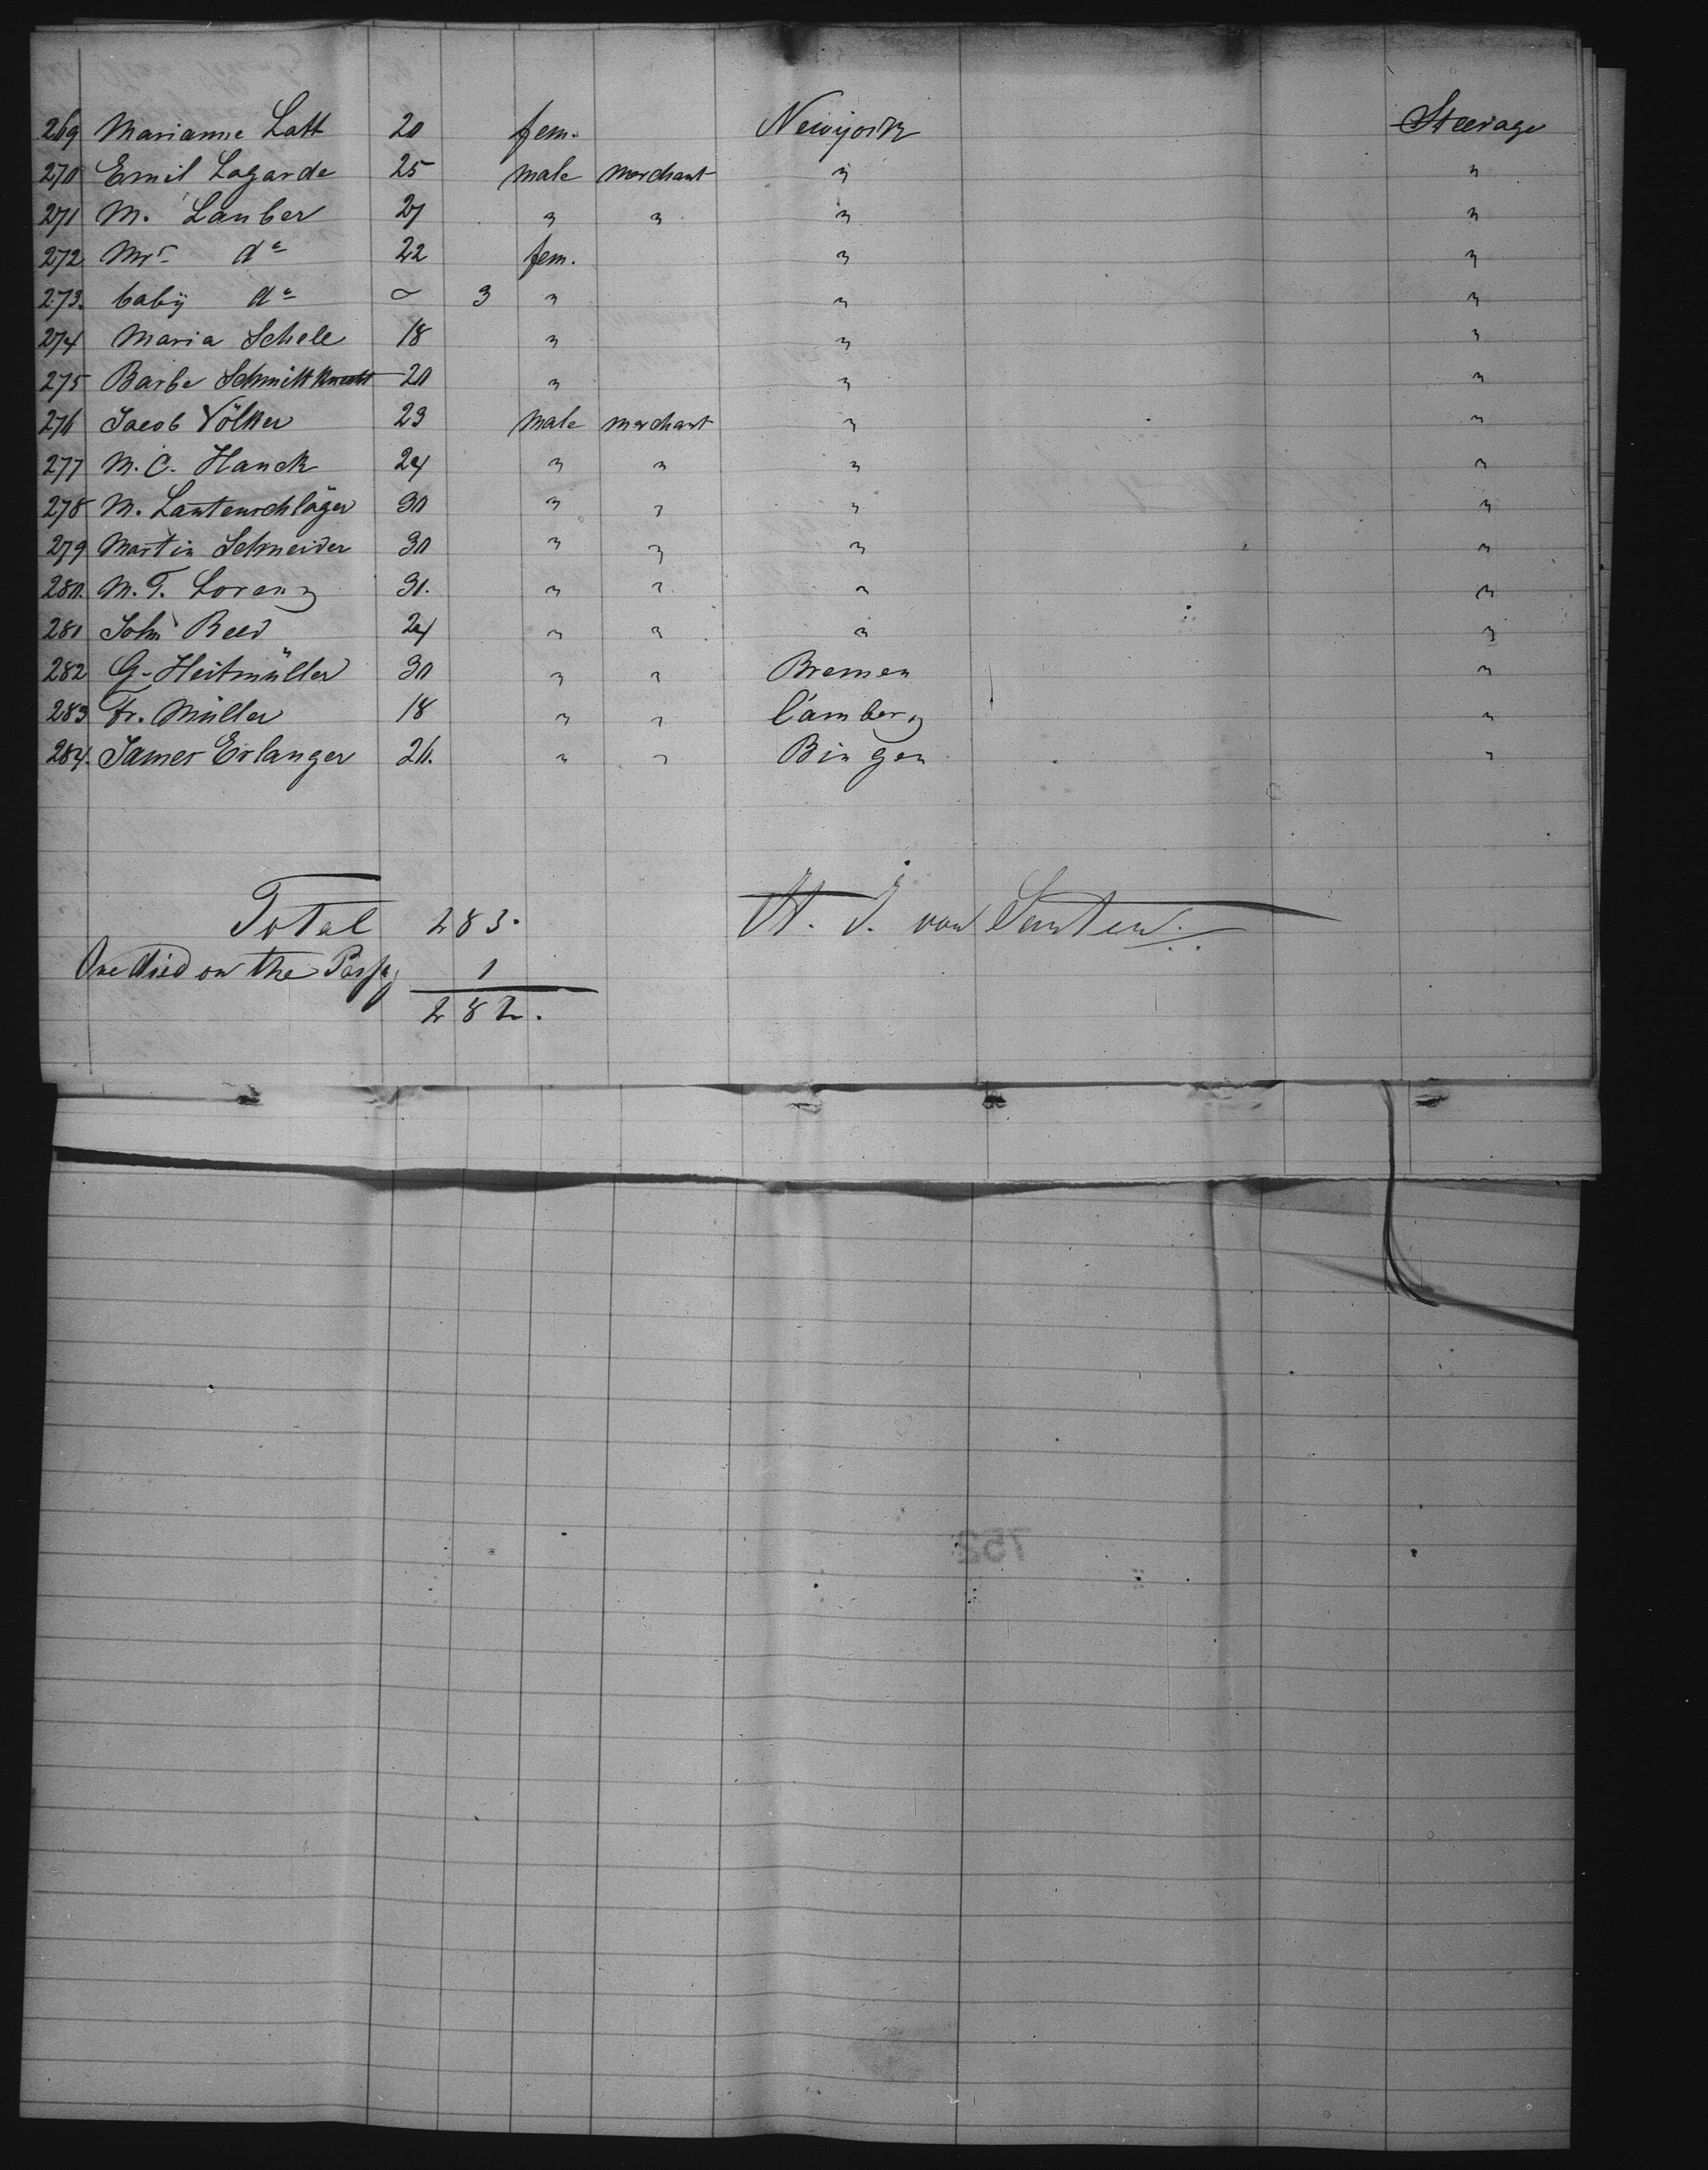 269 Marianne Latt 20 fem. Newyork Steerage
270 Emil Lagarde 25 male merchant " "
271 M. Lauber 27 " " " "
272 Mrs do 22 fem. " "
273. baby do 3 " " "
274 Maria Schele 18 " " "
275 Barbe Schmitt 20 " " "
276 Jacob Völker 23 male merchant " "
277 M. C. Hanck 24 " " " "
278 M. Lautenschläger 30 " " " "
279 Martin Schneider 30 " " " "
280. M. T. Lorenz 30. " " " "
281 John Reed 24 " " " "
282 G. Heitmüller 30 " " Bremen "
283 Fr. Müller 18 " " Camberg "
284. James Erlanger 26. " " Bingen "
Total 283. H. J. von Santen.
One died on the Passag 1
282.
752